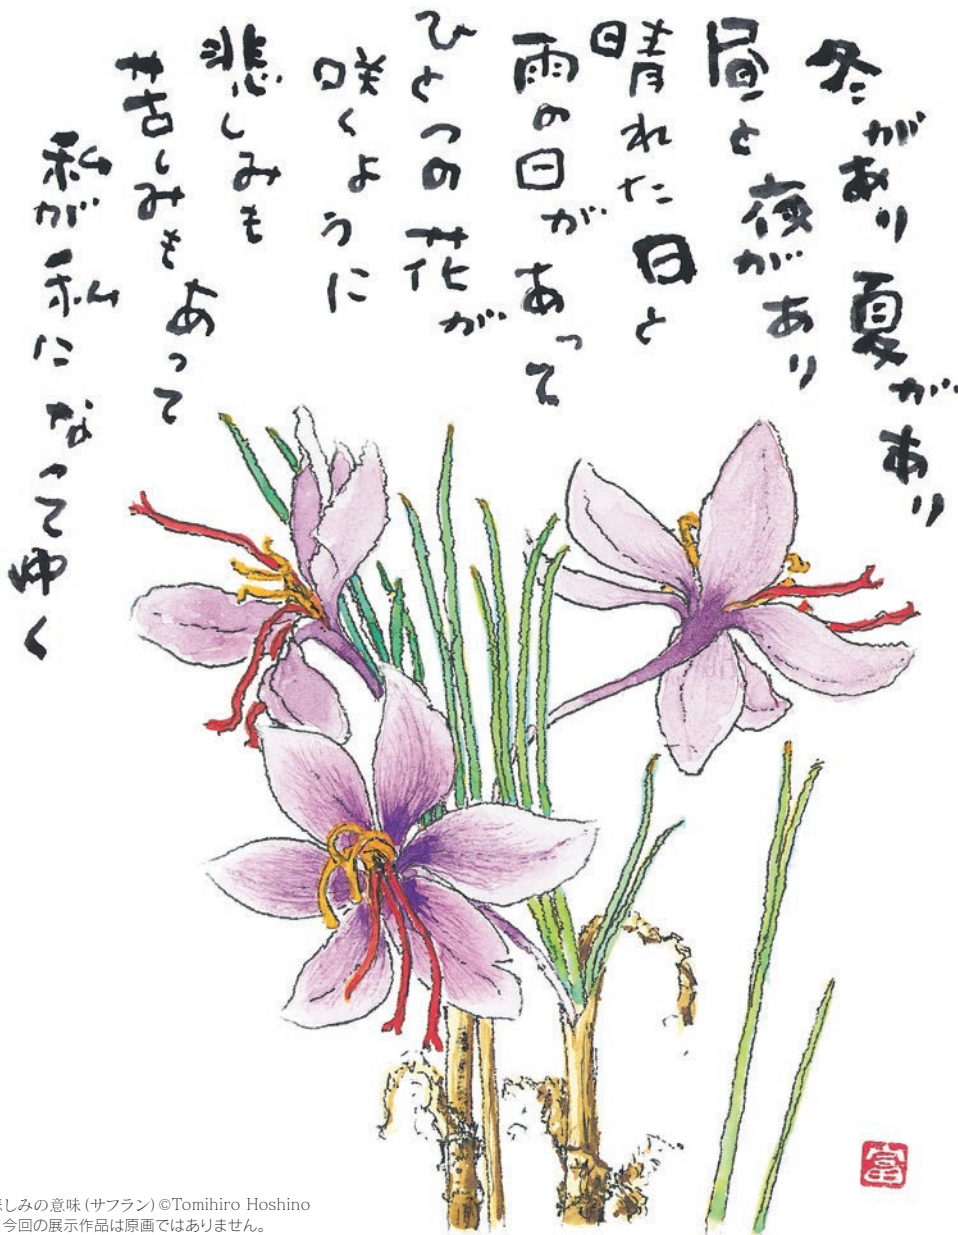 冬があり夏があり
昼と夜があり
晴れた日と
雨の日があって
ひとつの花が
咲くように
悲しみも
苦しみもあって
私が私になってゆく
富
しみの意味(サフラン)©Tomihiro Hoshino
今回の展示作品は原画ではありません。